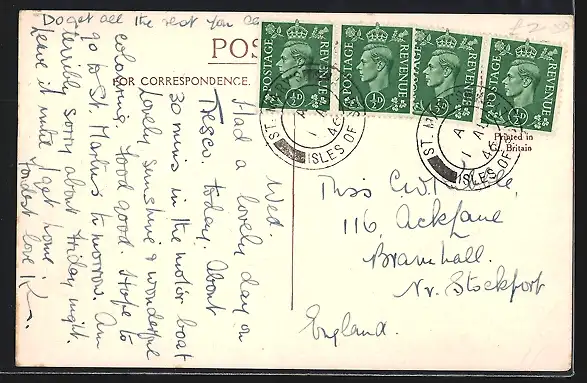 Do get all the rest you can
POS
FOR CORRESPONDENCE.
Wed.
Had a lovely day on
Tresco today. About
30 mins in the motor boat
Lovely sunshine & wonderful
colouring. Food good. Hope to
go to St. Martins tomorrow. Am
terribly sorry about Friday night.
leave it until I get home.
Fondest love K
POSTAGE REVENUE
½D
POSTAGE REVENUE
½D
POSTAGE REVENUE
½D
POSTAGE REVENUE
½D
ISLES OF
ST
ISLES OF
Printed in
Gt. Britain
Miss C.W.
116, Ack Lane
Bramhall.
Nr. Stockport
England.